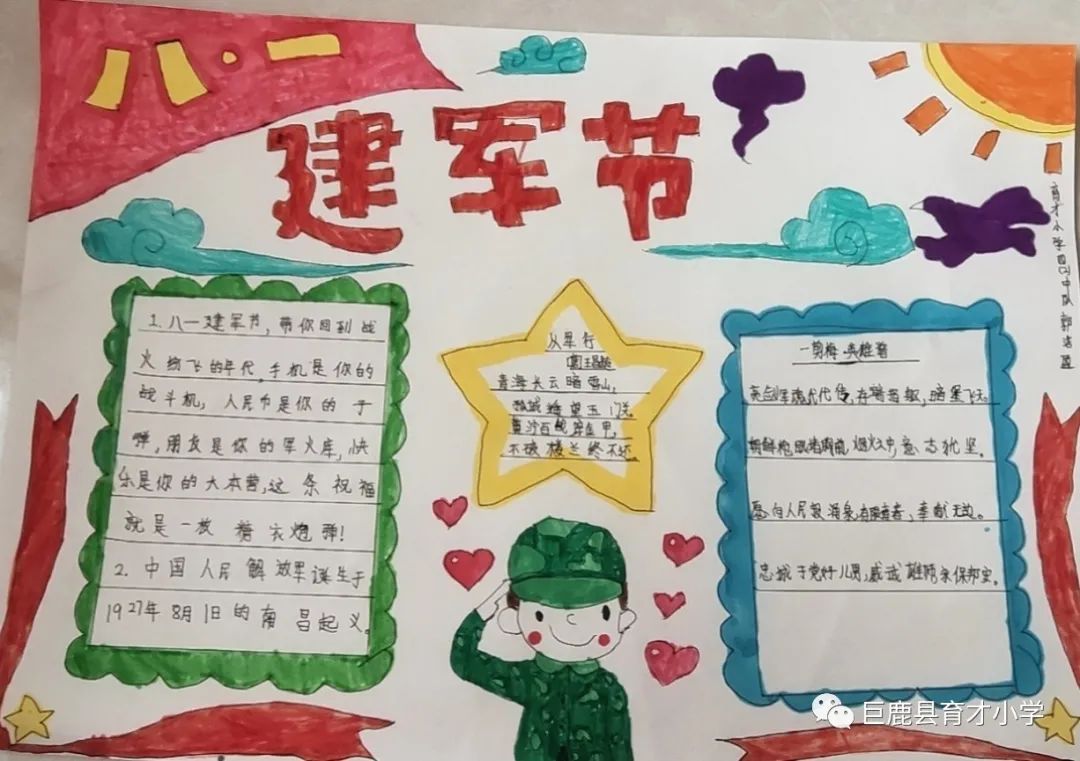 八·一
建军节
育才小学四(2)中队 郭
1.八一建军节,带你回到战
火纷飞的年代,手机是你的
战斗机,人民币是你的子
弹,朋友是你的军火库,快
乐是你的大本营,这条祝福
就是一枚糖衣炮弹!
2.中国人民解放军诞生于
1927年8月1日的南昌起义。
从军行
王昌龄
青海长云暗雪山,
孤城遥望玉门关。
黄沙百战穿金甲,
不破楼兰终不还。
一剪梅·英雄
亮剑军魂代代传,
朝鲜枪,烟火中,意志犹坚。
愿向人民,奉献无边。
忠诚于党好儿男,威武雄师,永保邦安。
巨鹿县育才小学